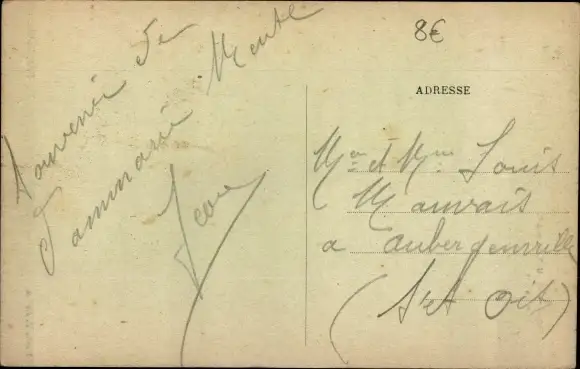 Souvenir de
Tammarie Monte
Jean
8€
ADRESSE
Mr et Mme Louis
Mauvais
a Aubergenville
(S et Oise)